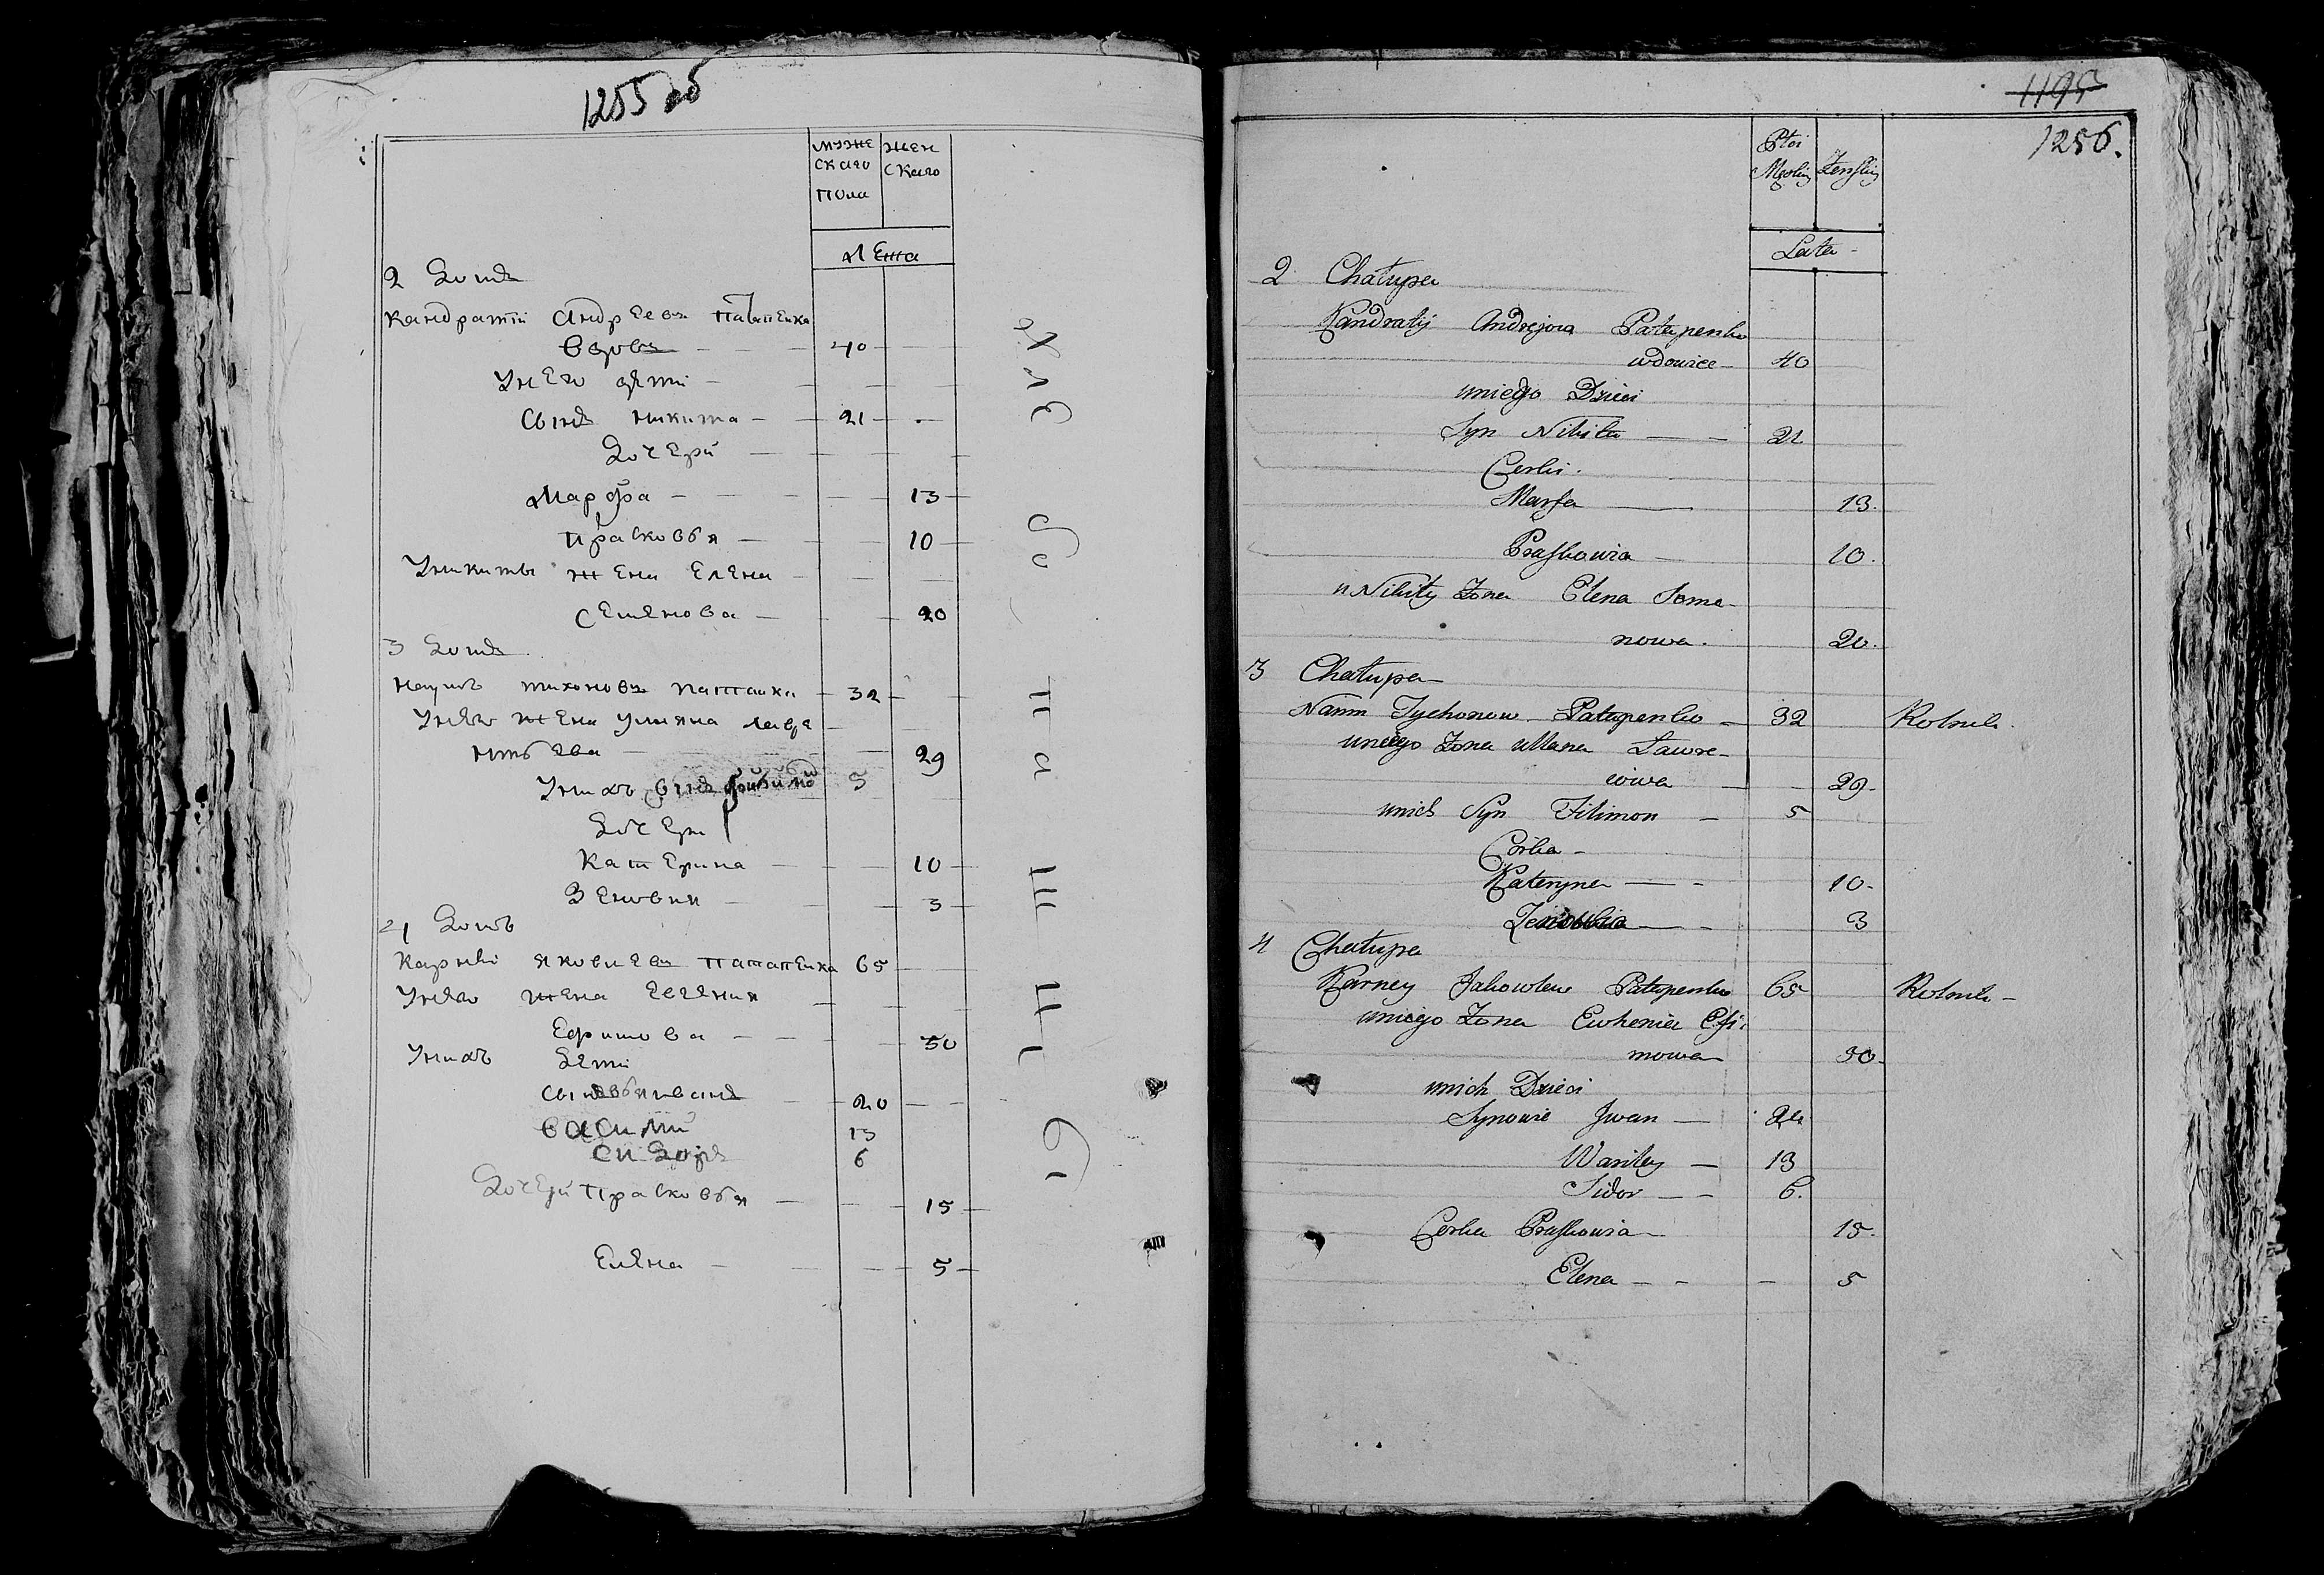 1255 об
муже
скаго
пола
жен
скаго
Лета
2 Домъ
Кандратій Андреевъ Патапенка
вдовъ 40
Унего дети
Сынъ Никита 21
Дочери
Марфа 13
Прасковья 10
Уникиты жена Елена
Семѣнова 20
3 Домъ
Наумъ Тихоновъ
32
Унѣго жена Ульяна Лавре
нтьева 29
Унихъ сынъ 5
Дочери
Катерина 10
Зеновия 3
4 Домъ
Карней Яковлевъ Патапенка 65
Унѣго жена Евгѣния
Ефимова 50
Унихъ Дѣти
сыновья иванъ 20
василий 13
Сидоръ 6
Дочери прасковья 15
Елѣна 5
1195
1256.
Płci
Męskiej
Żeńskiej
Lata
2 Chałupa
Kandratij Andrejowa Patapenko
wdowiec 40
uniego Dzieci
Syn Nikita 21
Corki.
Marfa 13.
Praskowia 10.
u Nikity Żona Elena Seme-
nowa. 20.
3 Chałupa
Naum Tychonow Patapenko 32 Rolnik.
uniego Żona Ullana Lawre-
29.
unich Syn Filimon 5
Córka
Kateryna 10.
Zenowia 3
4 Chałupa
Karney Jakowlew Patapenko 65 Rolnik
uniego Żona Ewhenia Efi-
mowa 50.
unich Dzieci
Synowie Jwan
Wasiley 13
Sidor 6.
Corka Praskowia 15.
Elena 5